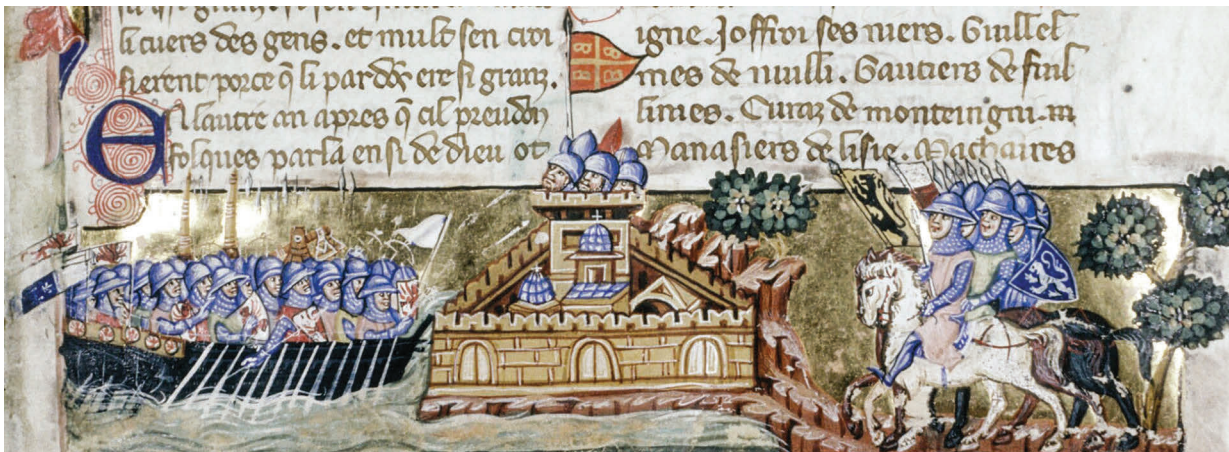 li cuers des gens. et mult sen croi
sierent porce q̃ li pardõs ere si granz.
En lautre an apres q̃ cil preudõ
folques parla ensi de dieu ot
igne. Joffroi ses niers. Guillel
mes de nuilli. Gautiers de fuil
lines. Euraz de monteingni. m
Manasiers de lisle. Machaires